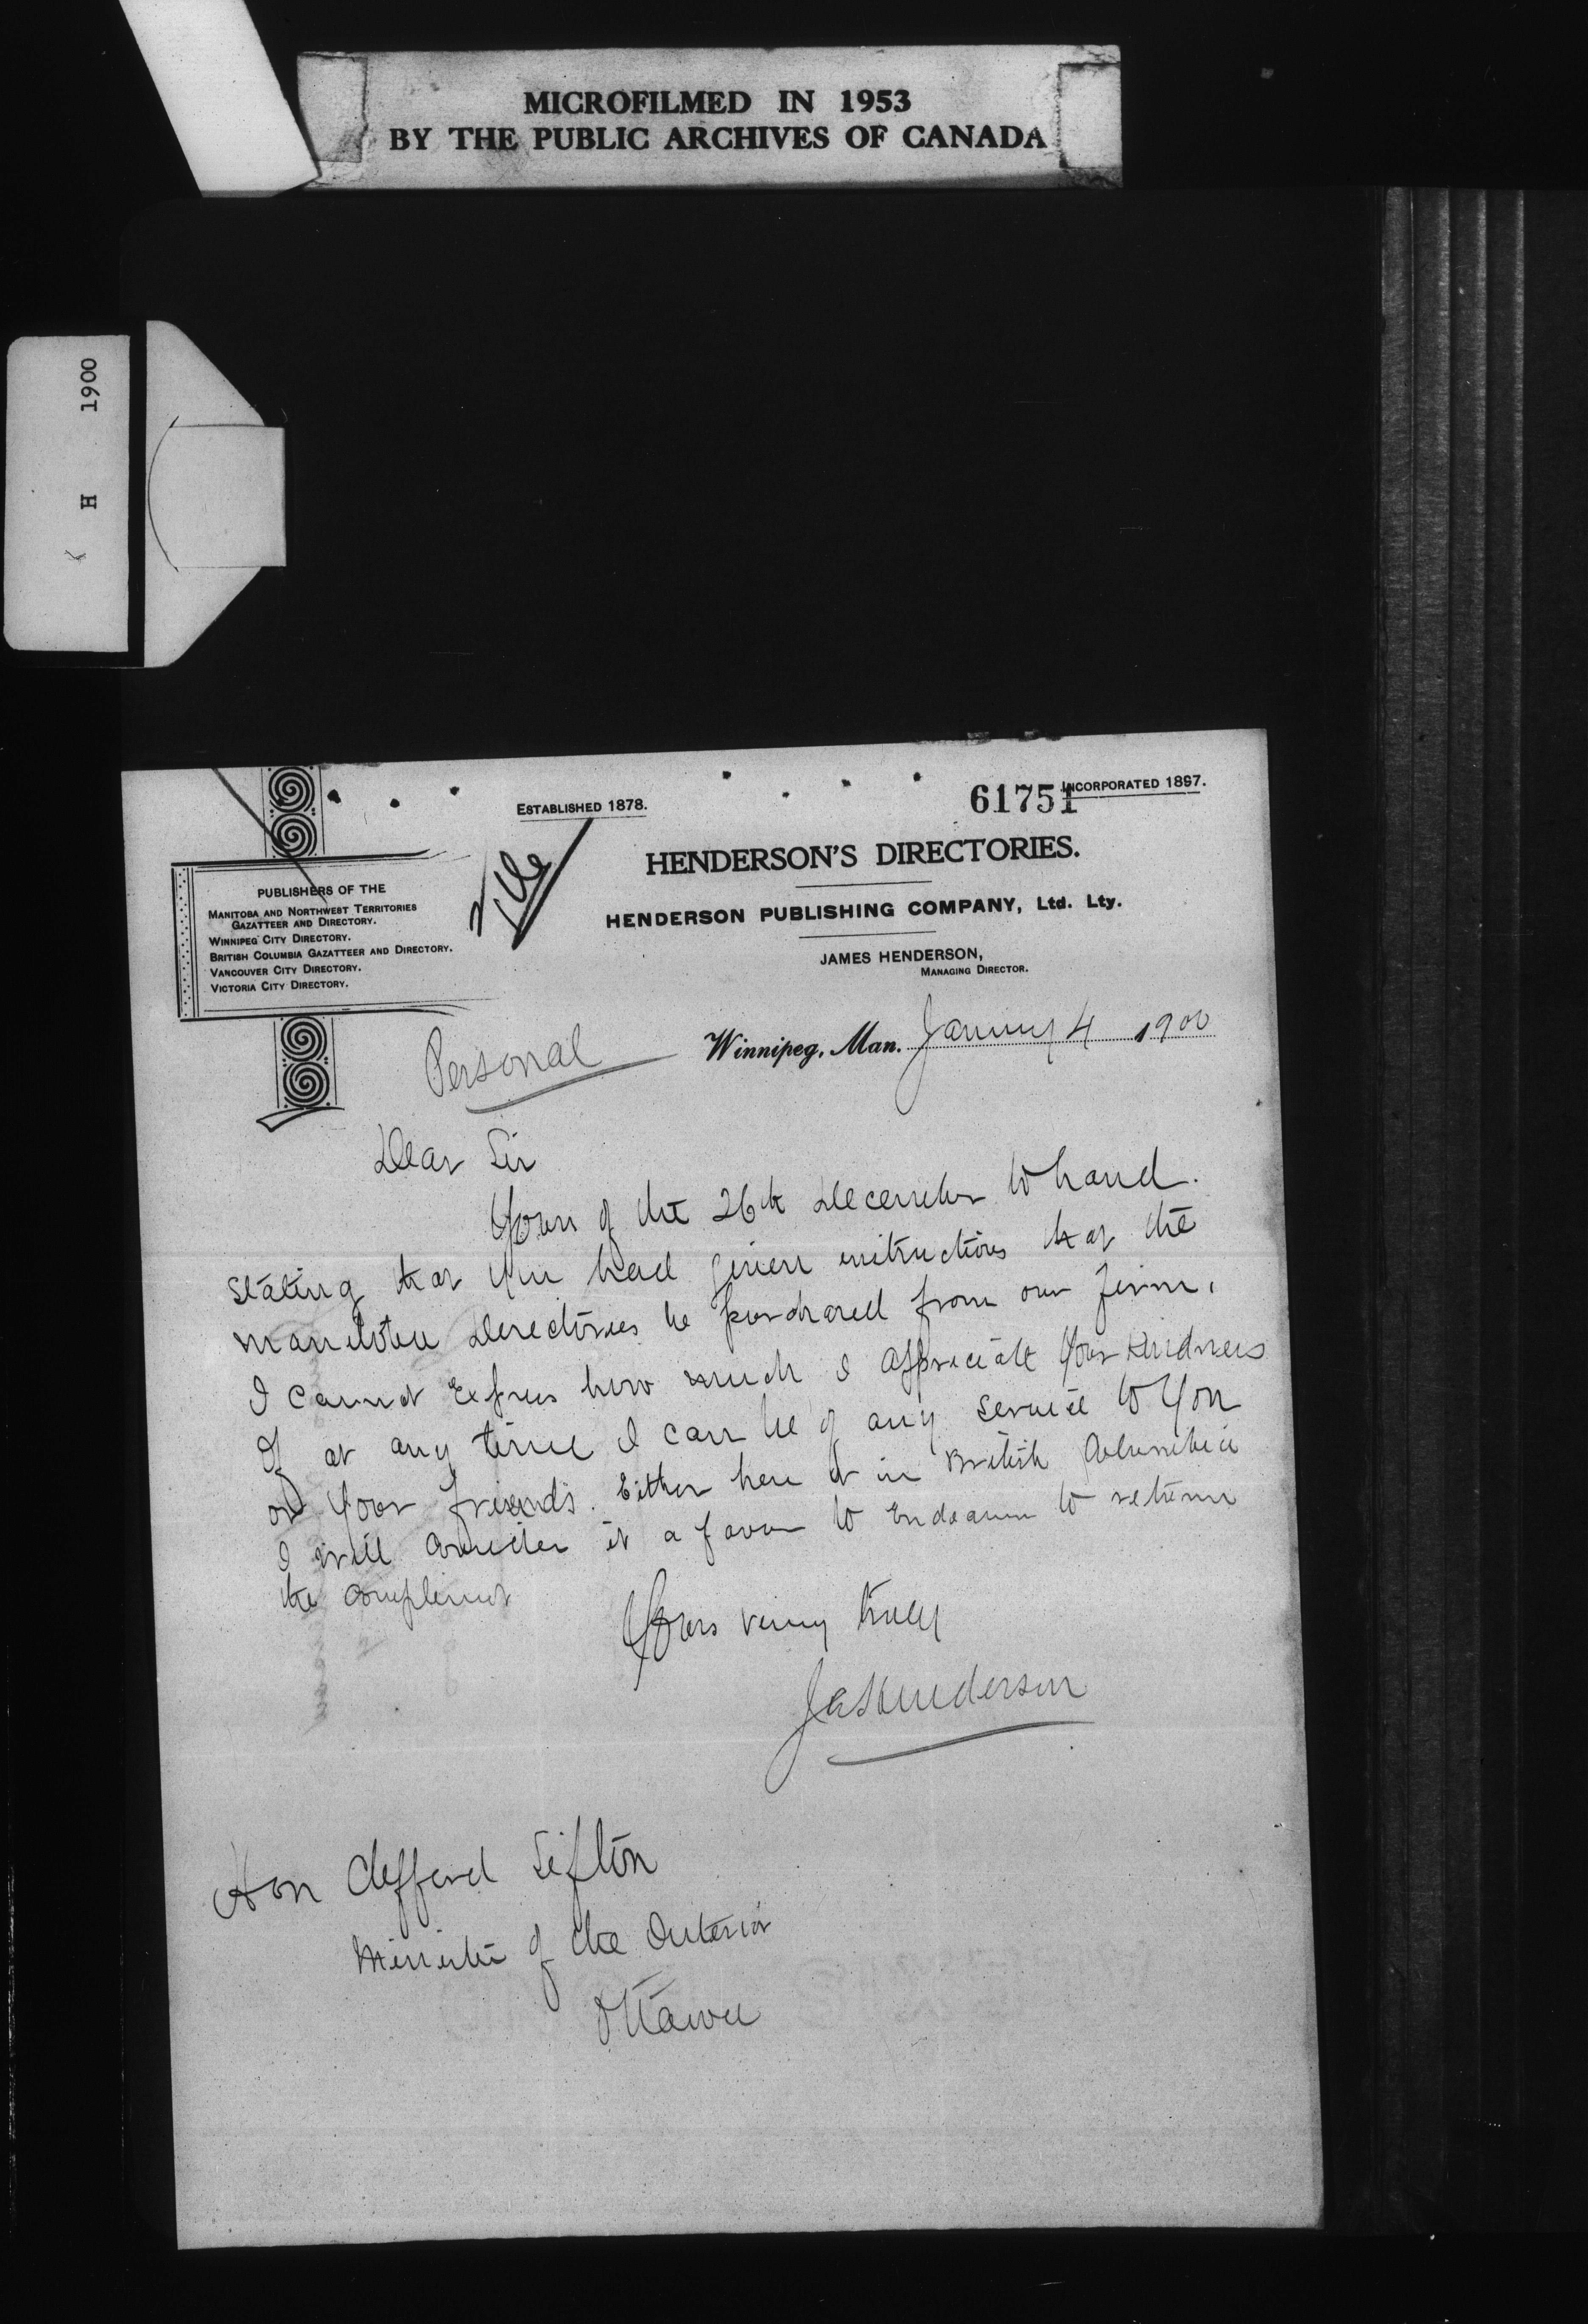 MICROFILMED IN 1953
BY THE PUBLIC ARCHIVES OF CANADA
H 1900
ESTABLISHED 1878.
61751
INCORPORATED 1897.
File
HENDERSON'S DIRECTORIES.
HENDERSON PUBLISHING COMPANY, Ltd. Lty.
JAMES HENDERSON,
MANAGING DIRECTOR.
PUBLISHERS OF THE
MANITOBA AND NORTHWEST TERRITORIES
GAZATTEER AND DIRECTORY.
WINNIPEG CITY DIRECTORY.
BRITISH COLUMBIA GAZATTEER AND DIRECTORY.
VANCOUVER CITY DIRECTORY.
VICTORIA CITY DIRECTORY.
Personal
Winnipeg, Man. January 4 1900
Dear Sir
Yours of the 26th December to hand.
Stating that you had given instructions that the
Manitoba Directories be purchased from our firm.
I cannot Express how much I Appreciate Your Kindness
If at any time I can be of any service to You
or Your friends. Either here or in British Columbia
I will Consider it a favor to Endeavor to return
the Compliment
Yours very truly
Jas Henderson
Hon Clifford Sifton
Minister of the Interior
Ottawa